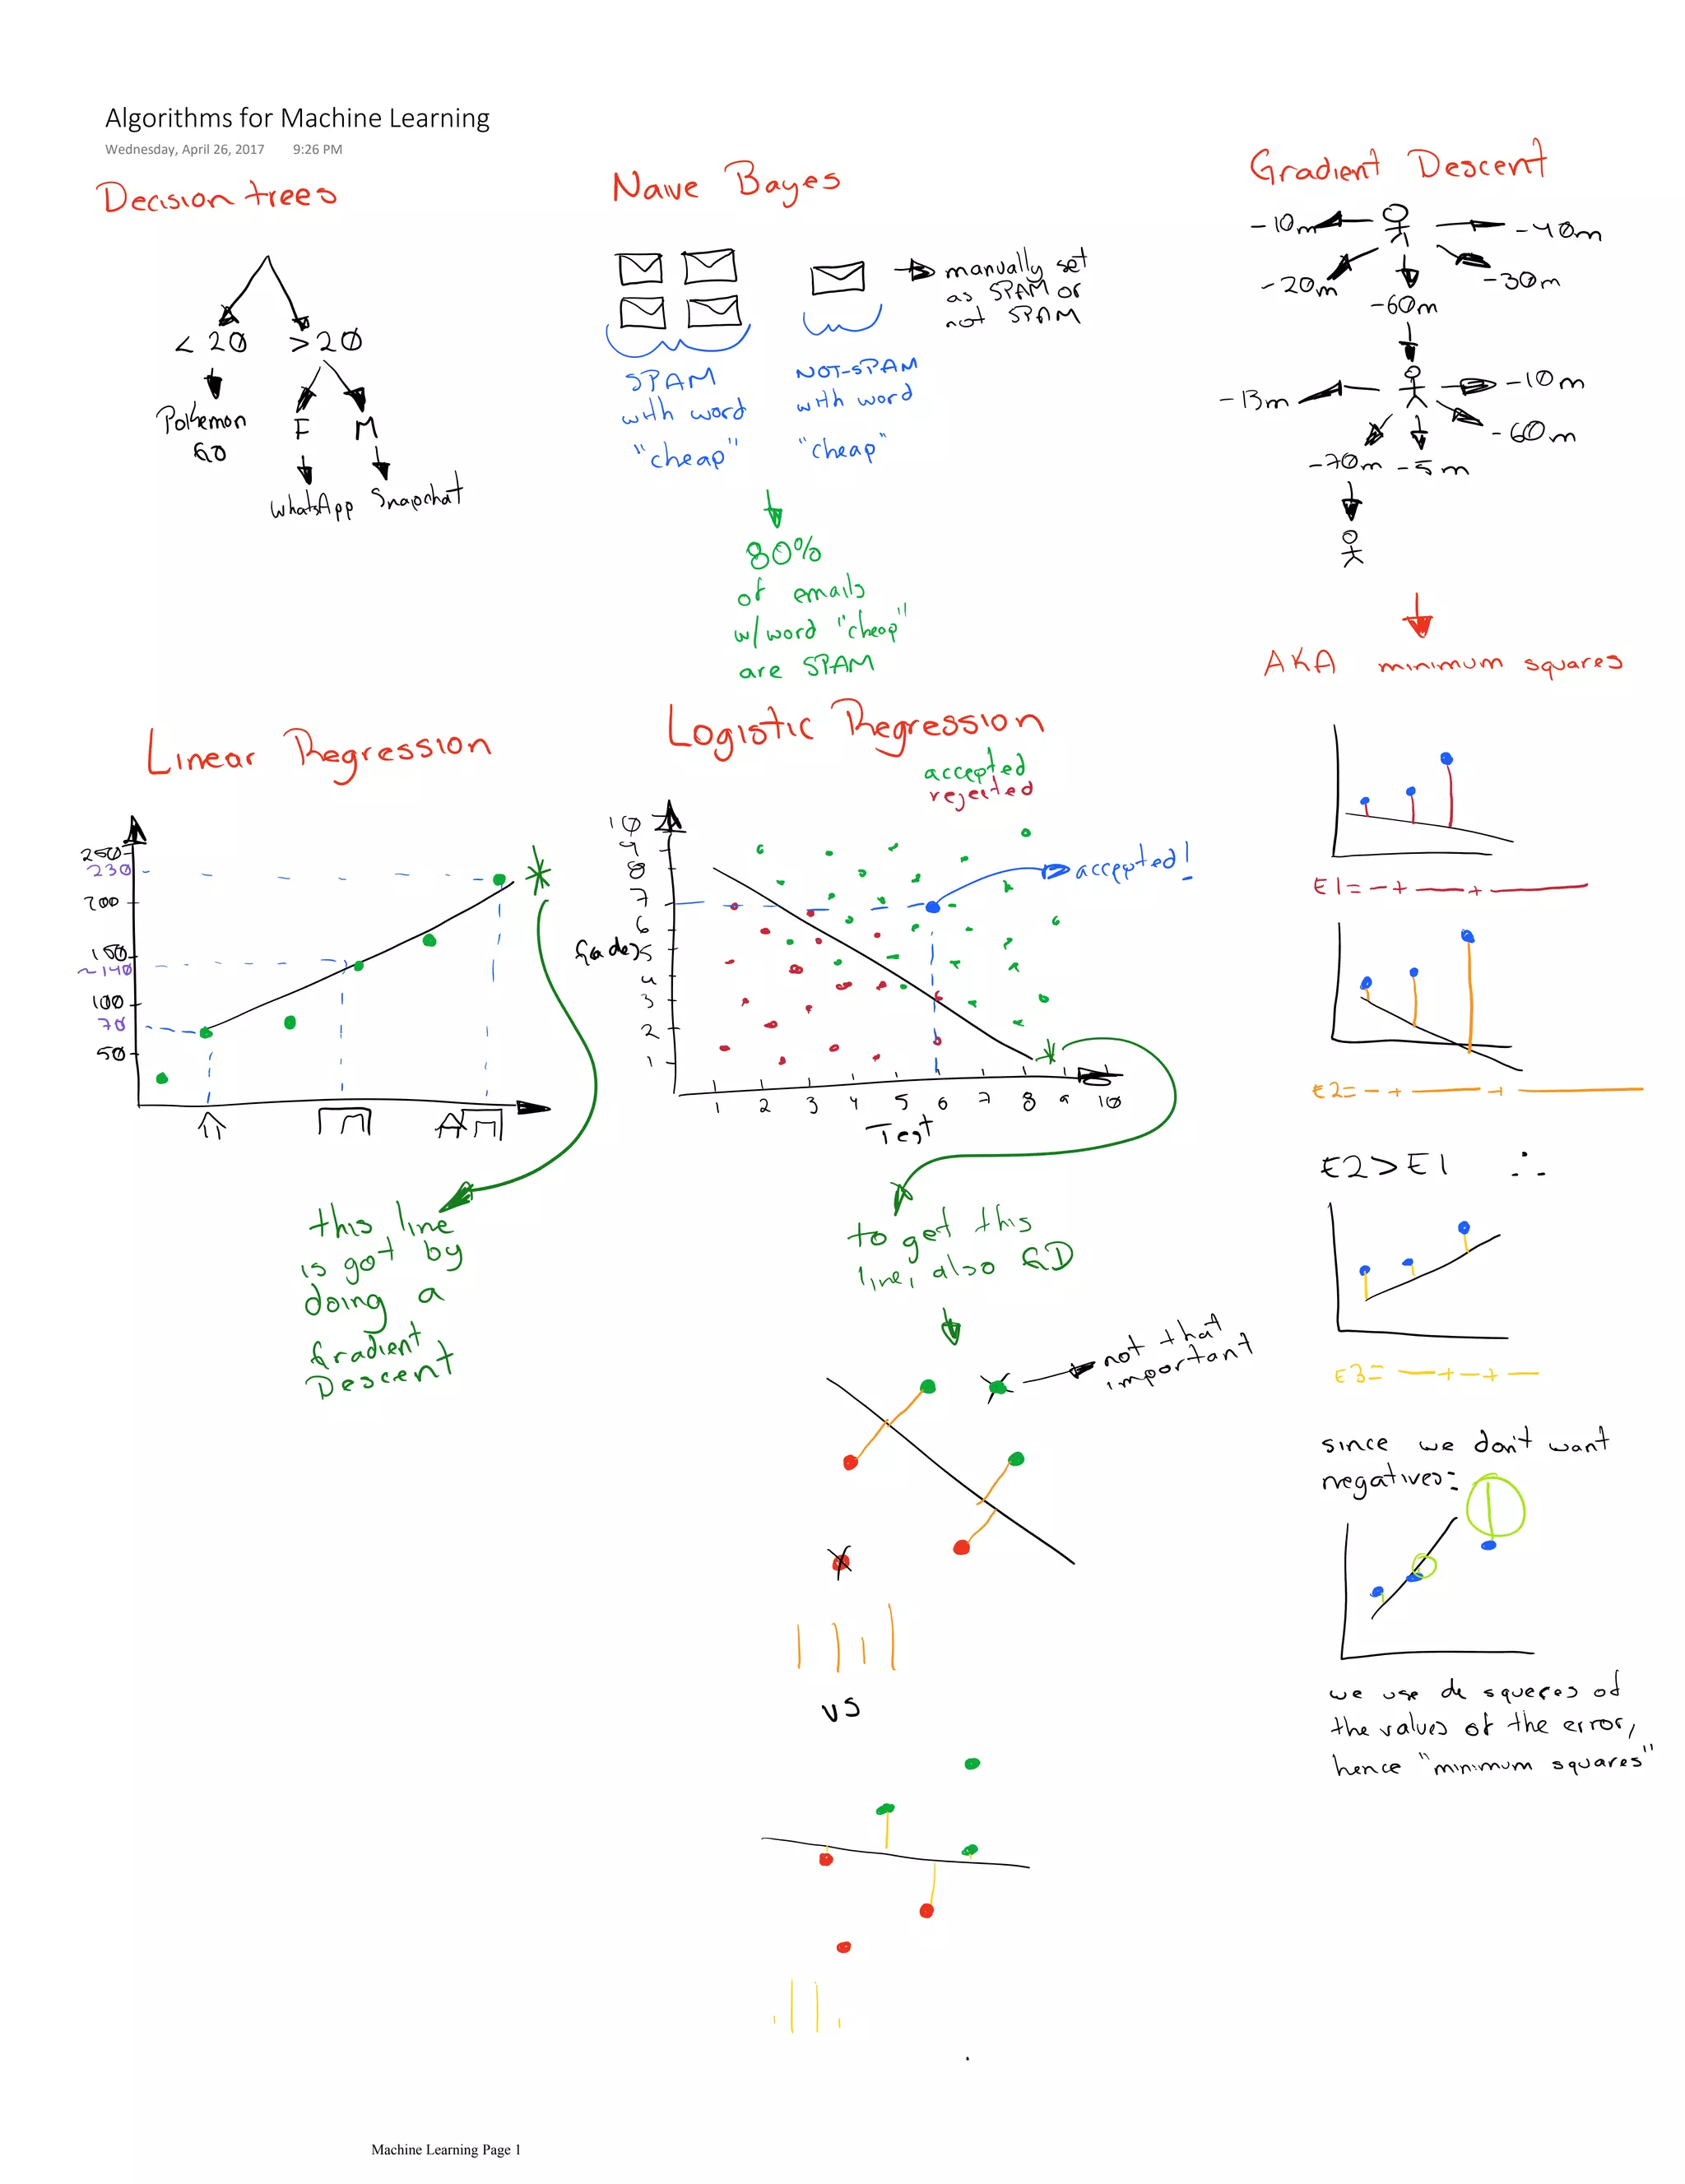 Algorithms for Machine Learning
Wednesday, April 26, 2017 9:26 PM
Decision trees
< 20 > 20
Pokemon
GO
F M
WhatsApp Snapchat
Naive Bayes
manually set
as SPAM or
not SPAM
SPAM
with word
"cheap"
NOT-SPAM
with word
"cheap"
80%
of emails
w/word "cheap"
are SPAM
Gradient Descent
-10m -40m
-20m -30m
-60m
-13m -10m
-60m
-70m -5m
AKA minimum squares
E1= - + — + —
E2= - + — + —
E2>E1 ∴
E3= — + - + —
since we don't want
negatives:
we use de squeres of
the values of the error,
hence "minimum squares"
Linear Regression
250
230
200
150
~140
100
70
50
this line
is got by
doing a
Gradient
Descent
Logistic Regression
accepted
rejected
10
9
8
7
6
5
4
3
2
1
Grades
accepted!
1 2 3 4 5 6 7 8 9 10
Test
to get this
line, also GD
not that
important
vs
Machine Learning Page 1